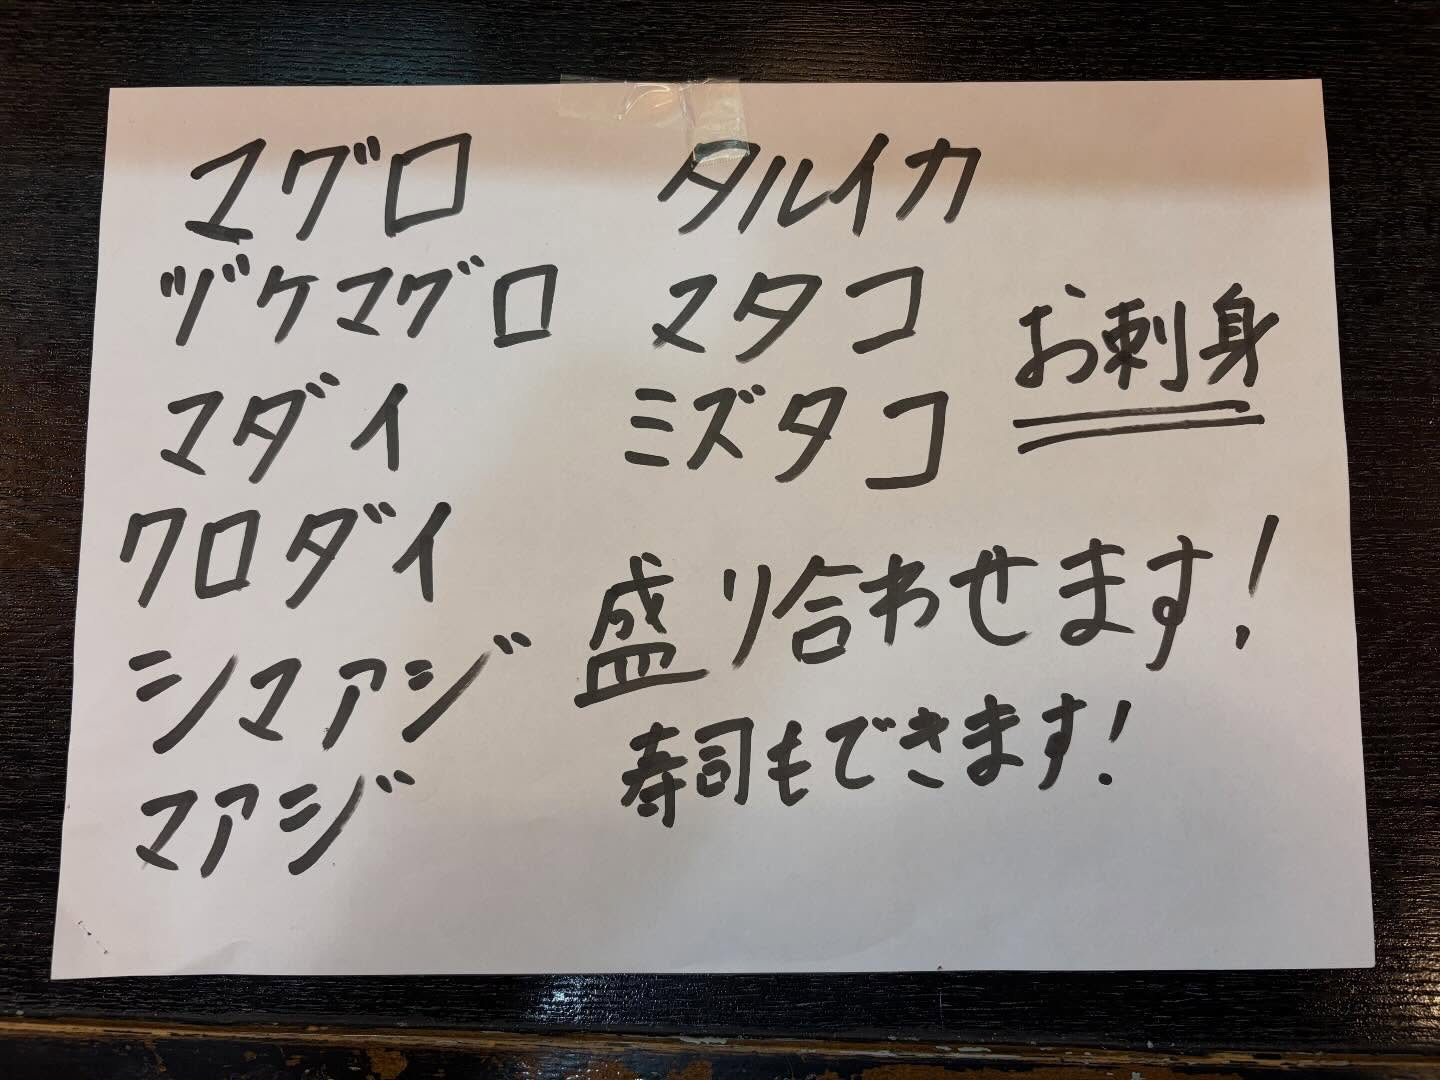 お刺身
マグロ
ヅケマグロ
マダイ
クロダイ
シマアジ
マアジ
タルイカ
マダコ
ミズダコ
盛り合わせます!
寿司もできます!